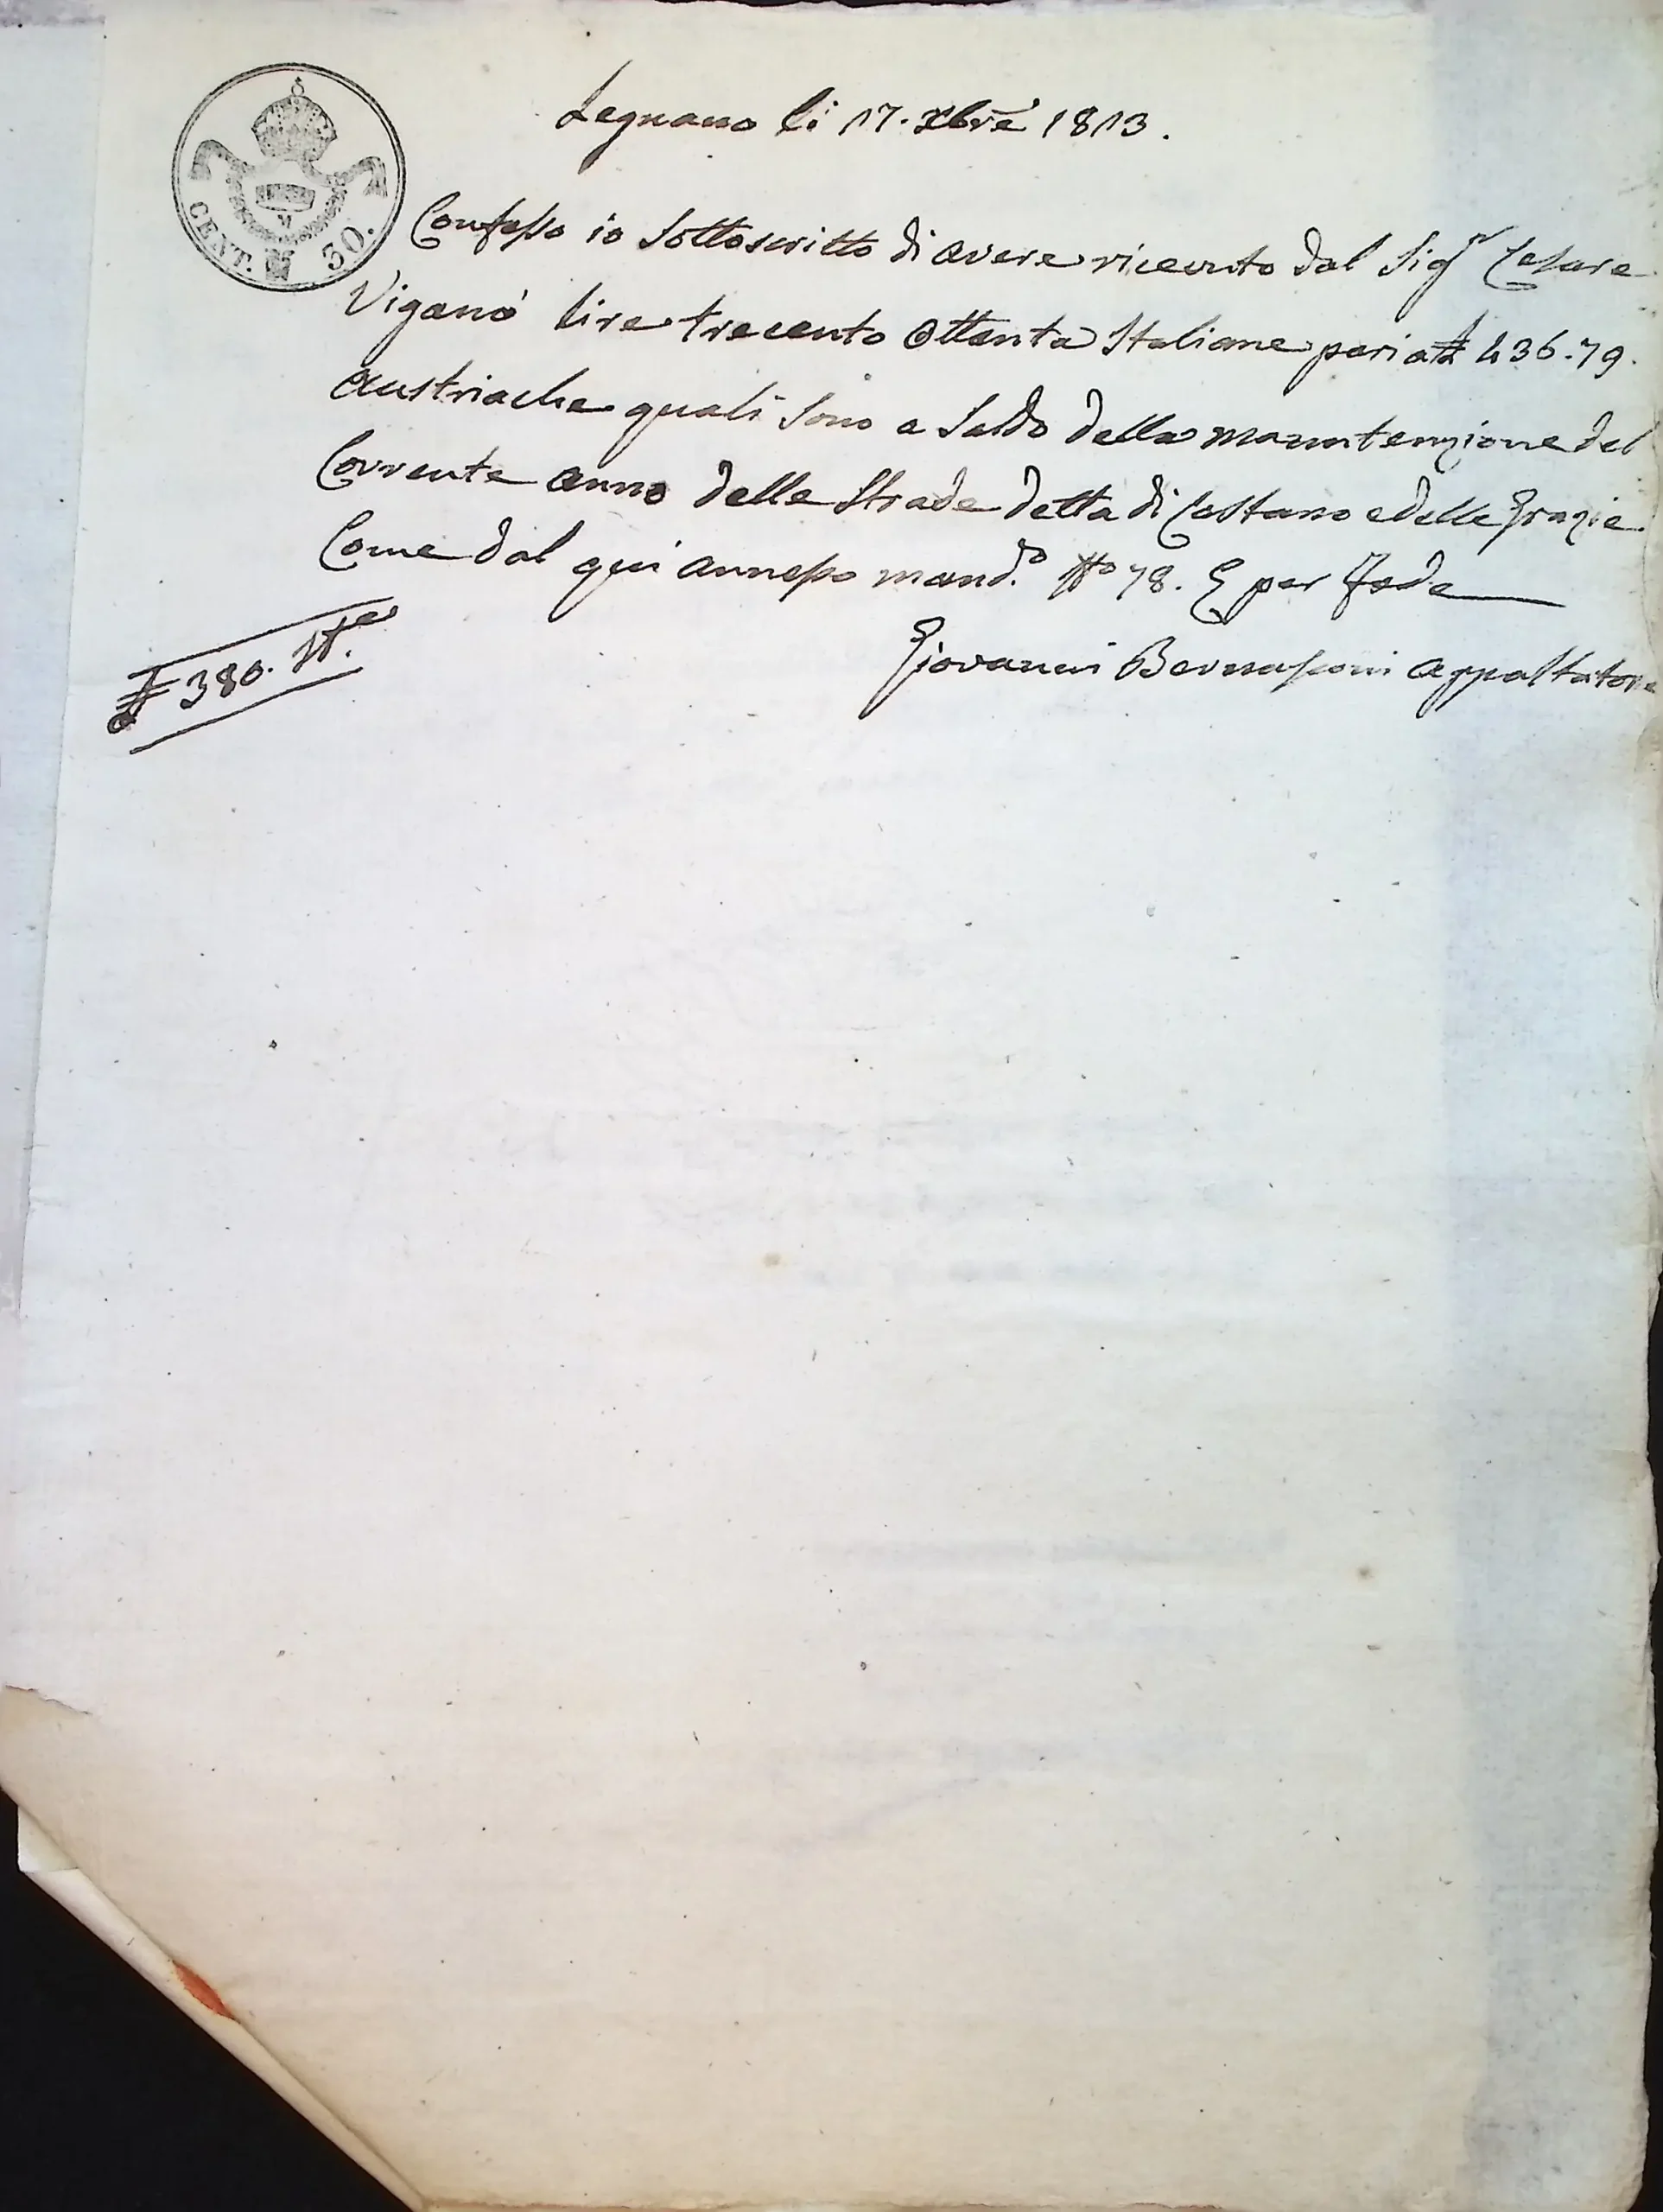 Legnano li 17. Xbre 1813.
CENT. 50.
Confesso io Sottoscritto di avere ricevuto dal Sigr Cesare
Viganò lire trecento Ottanta Italiane pari a £ 436.79.
Austriache quali sono a Saldo della manutenzione del
Corrente anno delle Strade detta di Castano e delle Grazie
Come dal qui annesso mand.to No 78. E per Fede
£ 380. It.e
Giovanni Bernasconi Appaltatore